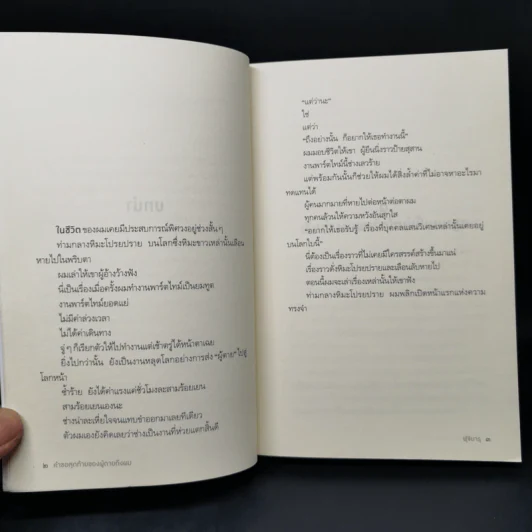 บทนำ
ในชีวิต ของผมเคยมีประสบการณ์พิศวงอยู่ช่วงสั้น ๆ
ท่ามกลางหิมะโปรยปราย บนโลกซึ่งหิมะขาวเหล่านั้นเลือน
หายไปในพริบตา
ผมเล่าให้เขาผู้อ้างว้างฟัง
นี่เป็นเรื่องเมื่อครั้งผมทำงานพาร์ตไทม์เป็นยมทูต
งานพาร์ตไทม์ยอดแย่
ไม่มีค่าล่วงเวลา
ไม่ได้ค่าเดินทาง
จู่ ๆ ก็เรียกตัวให้ไปทำงานแต่เช้าตรู่ได้หน้าตาเฉย
ยิ่งไปกว่านั้น ยังเป็นงานหลุดโลกอย่างการส่ง “ผู้ตาย” ไปสู่
โลกหน้า
ซ้ำร้าย ยังได้ค่าแรงแค่ชั่วโมงละสามร้อยเยน
สามร้อยเยนเองนะ
ช่างน่าละเหี่ยใจจนแทบขำออกมาเลยทีเดียว
ตัวผมเองยังคิดเลยว่าช่างเป็นงานที่ห่วยแตกสิ้นดี
๒ คำขอสุดท้ายของผู้ตายถึงผม
“แต่ว่านะ”
ใช่
แต่ว่า
“ถึงอย่างนั้น ก็อยากให้เธอทำงานนี้”
ผมมอบชีวิตให้เขา ผู้ยืนนิ่งราวป้ายสุสาน
งานพาร์ตไทม์นี้ช่างเลวร้าย
แต่พร้อมกันนั้นก็ช่วยให้ผมได้สิ่งล้ำค่าที่ไม่อาจหาอะไรมา
ทดแทนได้
ผู้คนมากมายที่หายไปต่อหน้าต่อตาผม
ทุกคนล้วนให้ความหวังอันสุกใส
“อยากให้เธอรับรู้ เรื่องที่บุคคลแสนวิเศษเหล่านั้นเคยอยู่
บนโลกใบนี้”
นี่ต้องเป็นเรื่องราวที่ไม่เคยมีใครสรรค์สร้างขึ้นมาแน่
เรื่องราวดั่งหิมะโปรยปรายและเลือนลับหายไป
ตอนนี้ผมจะเล่าเรื่องเหล่านั้นให้เขาฟัง
ท่ามกลางหิมะโปรยปราย ผมพลิกเปิดหน้าแรกแห่งความ
ทรงจำ
ฟุจิมารุ ๓